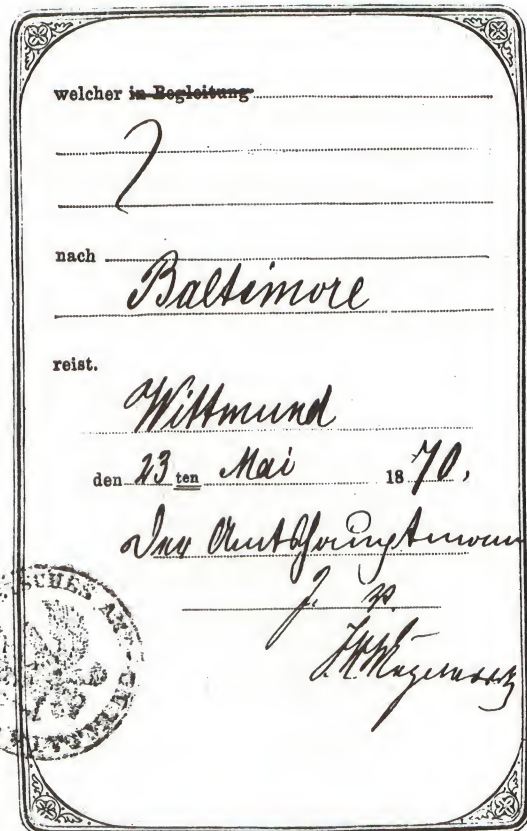 welcher in Begleitung
nach
Baltimore
reist.
Wittmund
den 23 ten Mai 1870.
Der Amtshauptmann